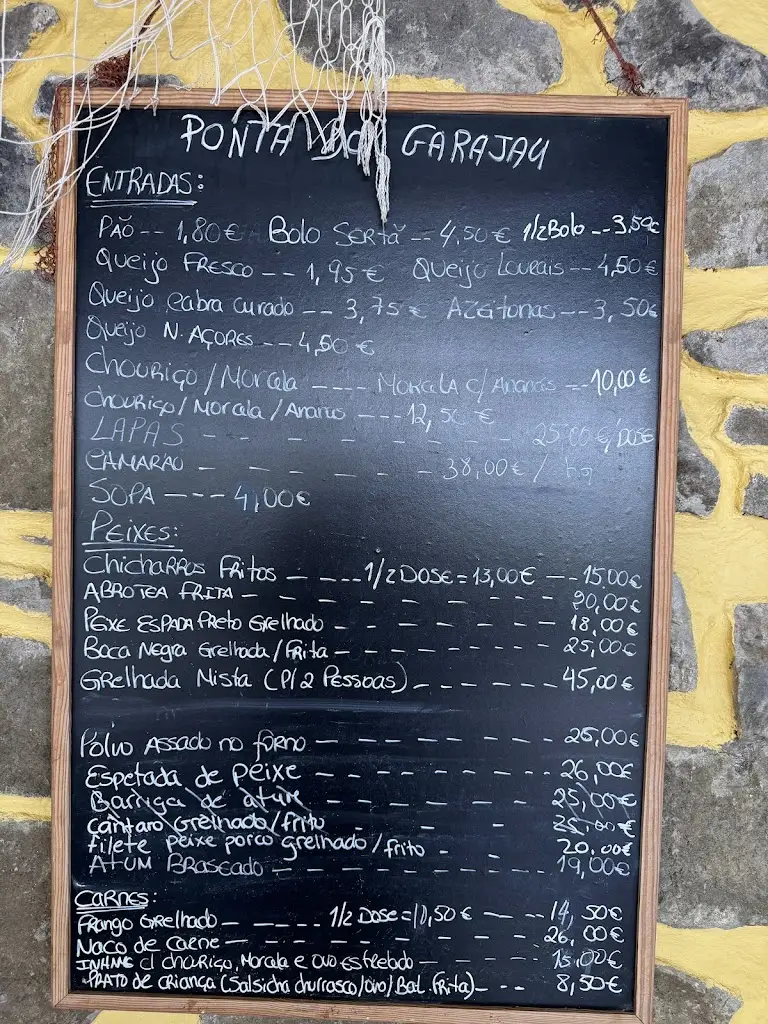 PONTA DO GARAJAU
ENTRADAS:
PÃO -- 1,80€ BOLO SERTÃ -- 4,50€ 1/2 BOLO -- 3,50€
QUEIJO FRESCO -- 1,95€ QUEIJO LOURAIS -- 4,50€
QUEIJO CABRA CURADO -- 3,75€ AZEITONAS -- 3,50€
QUEIJO N. AÇORES -- 4,50€
CHOURIÇO / MORCELA ---- MORCELA C/ ANANÁS -- 10,00€
CHOURIÇO / MORCELA / ANANÁS --- 12,50€
LAPAS - - - - - - - 25,00€/DOSE
CAMARÃO - - - - - - 38,00€ / kg
SOPA ---- 4,00€
PEIXES:
CHICHARROS FRITOS - ---- 1/2 DOSE = 13,00€ --- 15,00€
ABROTEA FRITA - - - - - - - 20,00€
PEIXE ESPADA PRETO GRELHADO - - - - - - 18,00€
BOCA NEGRA GRELHADA / FRITA - - - - - - 25,00€
GRELHADA MISTA (P/ 2 PESSOAS) - - - - - 45,00€
POLVO ASSADO NO FORNO - - - - - - 26,00€
ESPETADA DE PEIXE - - - - - - 26,00€
BARRIGA DE ATUM - - - - - - 25,00€
CÂNTARO GRELHADO / FRITO - - 25,00€
FILETE PEIXE PORCO GRELHADO / FRITO - - 20,00€
ATUM BRASEADO - - - - - - 19,00€
CARNES:
FRANGO GRELHADO - ---- 1/2 DOSE = 10,50€ ---- 14,50€
NACO DE CARNE - - - - - - 26,00€
INHAME C/ CHOURIÇO, MORCELA E OVO ESTRELADO - - - 15,00€
PRATO DE CRIANÇA (SALSICHA CHURRASCO / OVO / BAT. FRITA) - - 8,50€